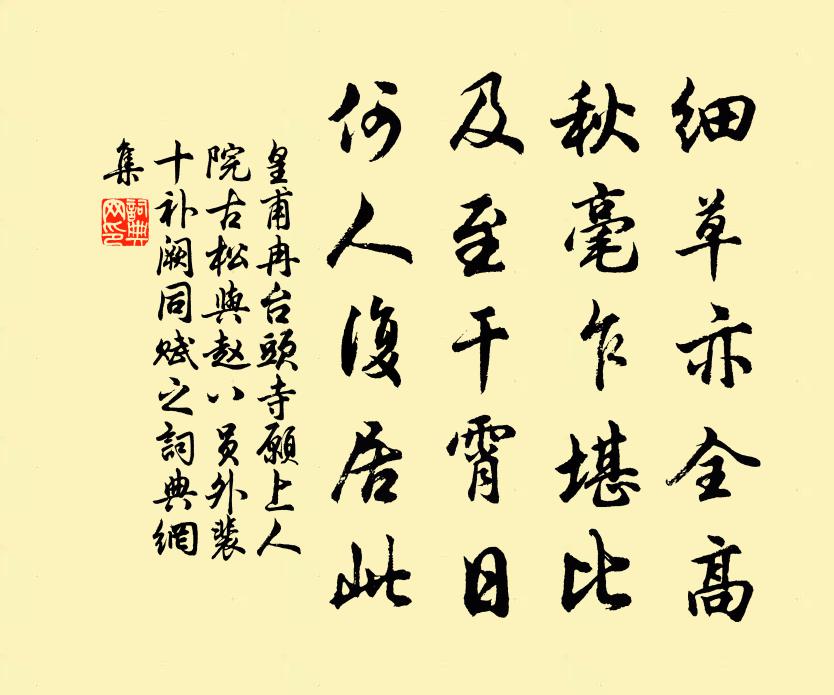 细草亦全高
秋毫乍堪比
及至干霄日
何人復居此
皇甫冉台頭寺願上人
院古松與赵八员外裴
十补阙同赋之詞典網
集
詞典网印